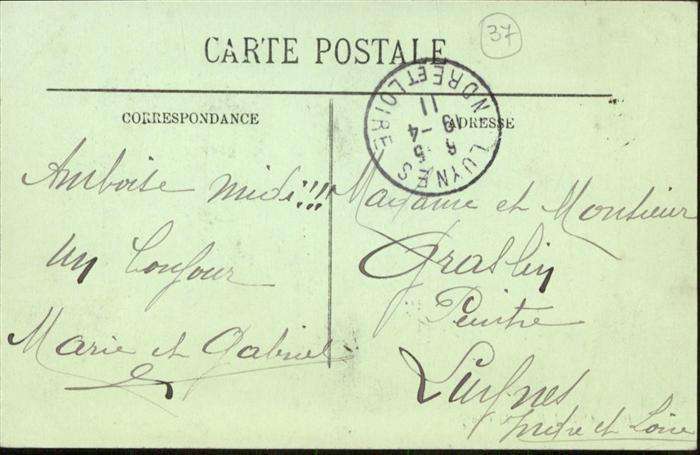 37
CARTE POSTALE
CORRESPONDANCE
ADRESSE
LUYNES
INDRE ET LOIRE
5 -4
11
Amboise midi!!!
un bonjour
Marie et Gabriel
Madame et Monsieur
Graslin
Peintre
Luynes
Indre et Loire